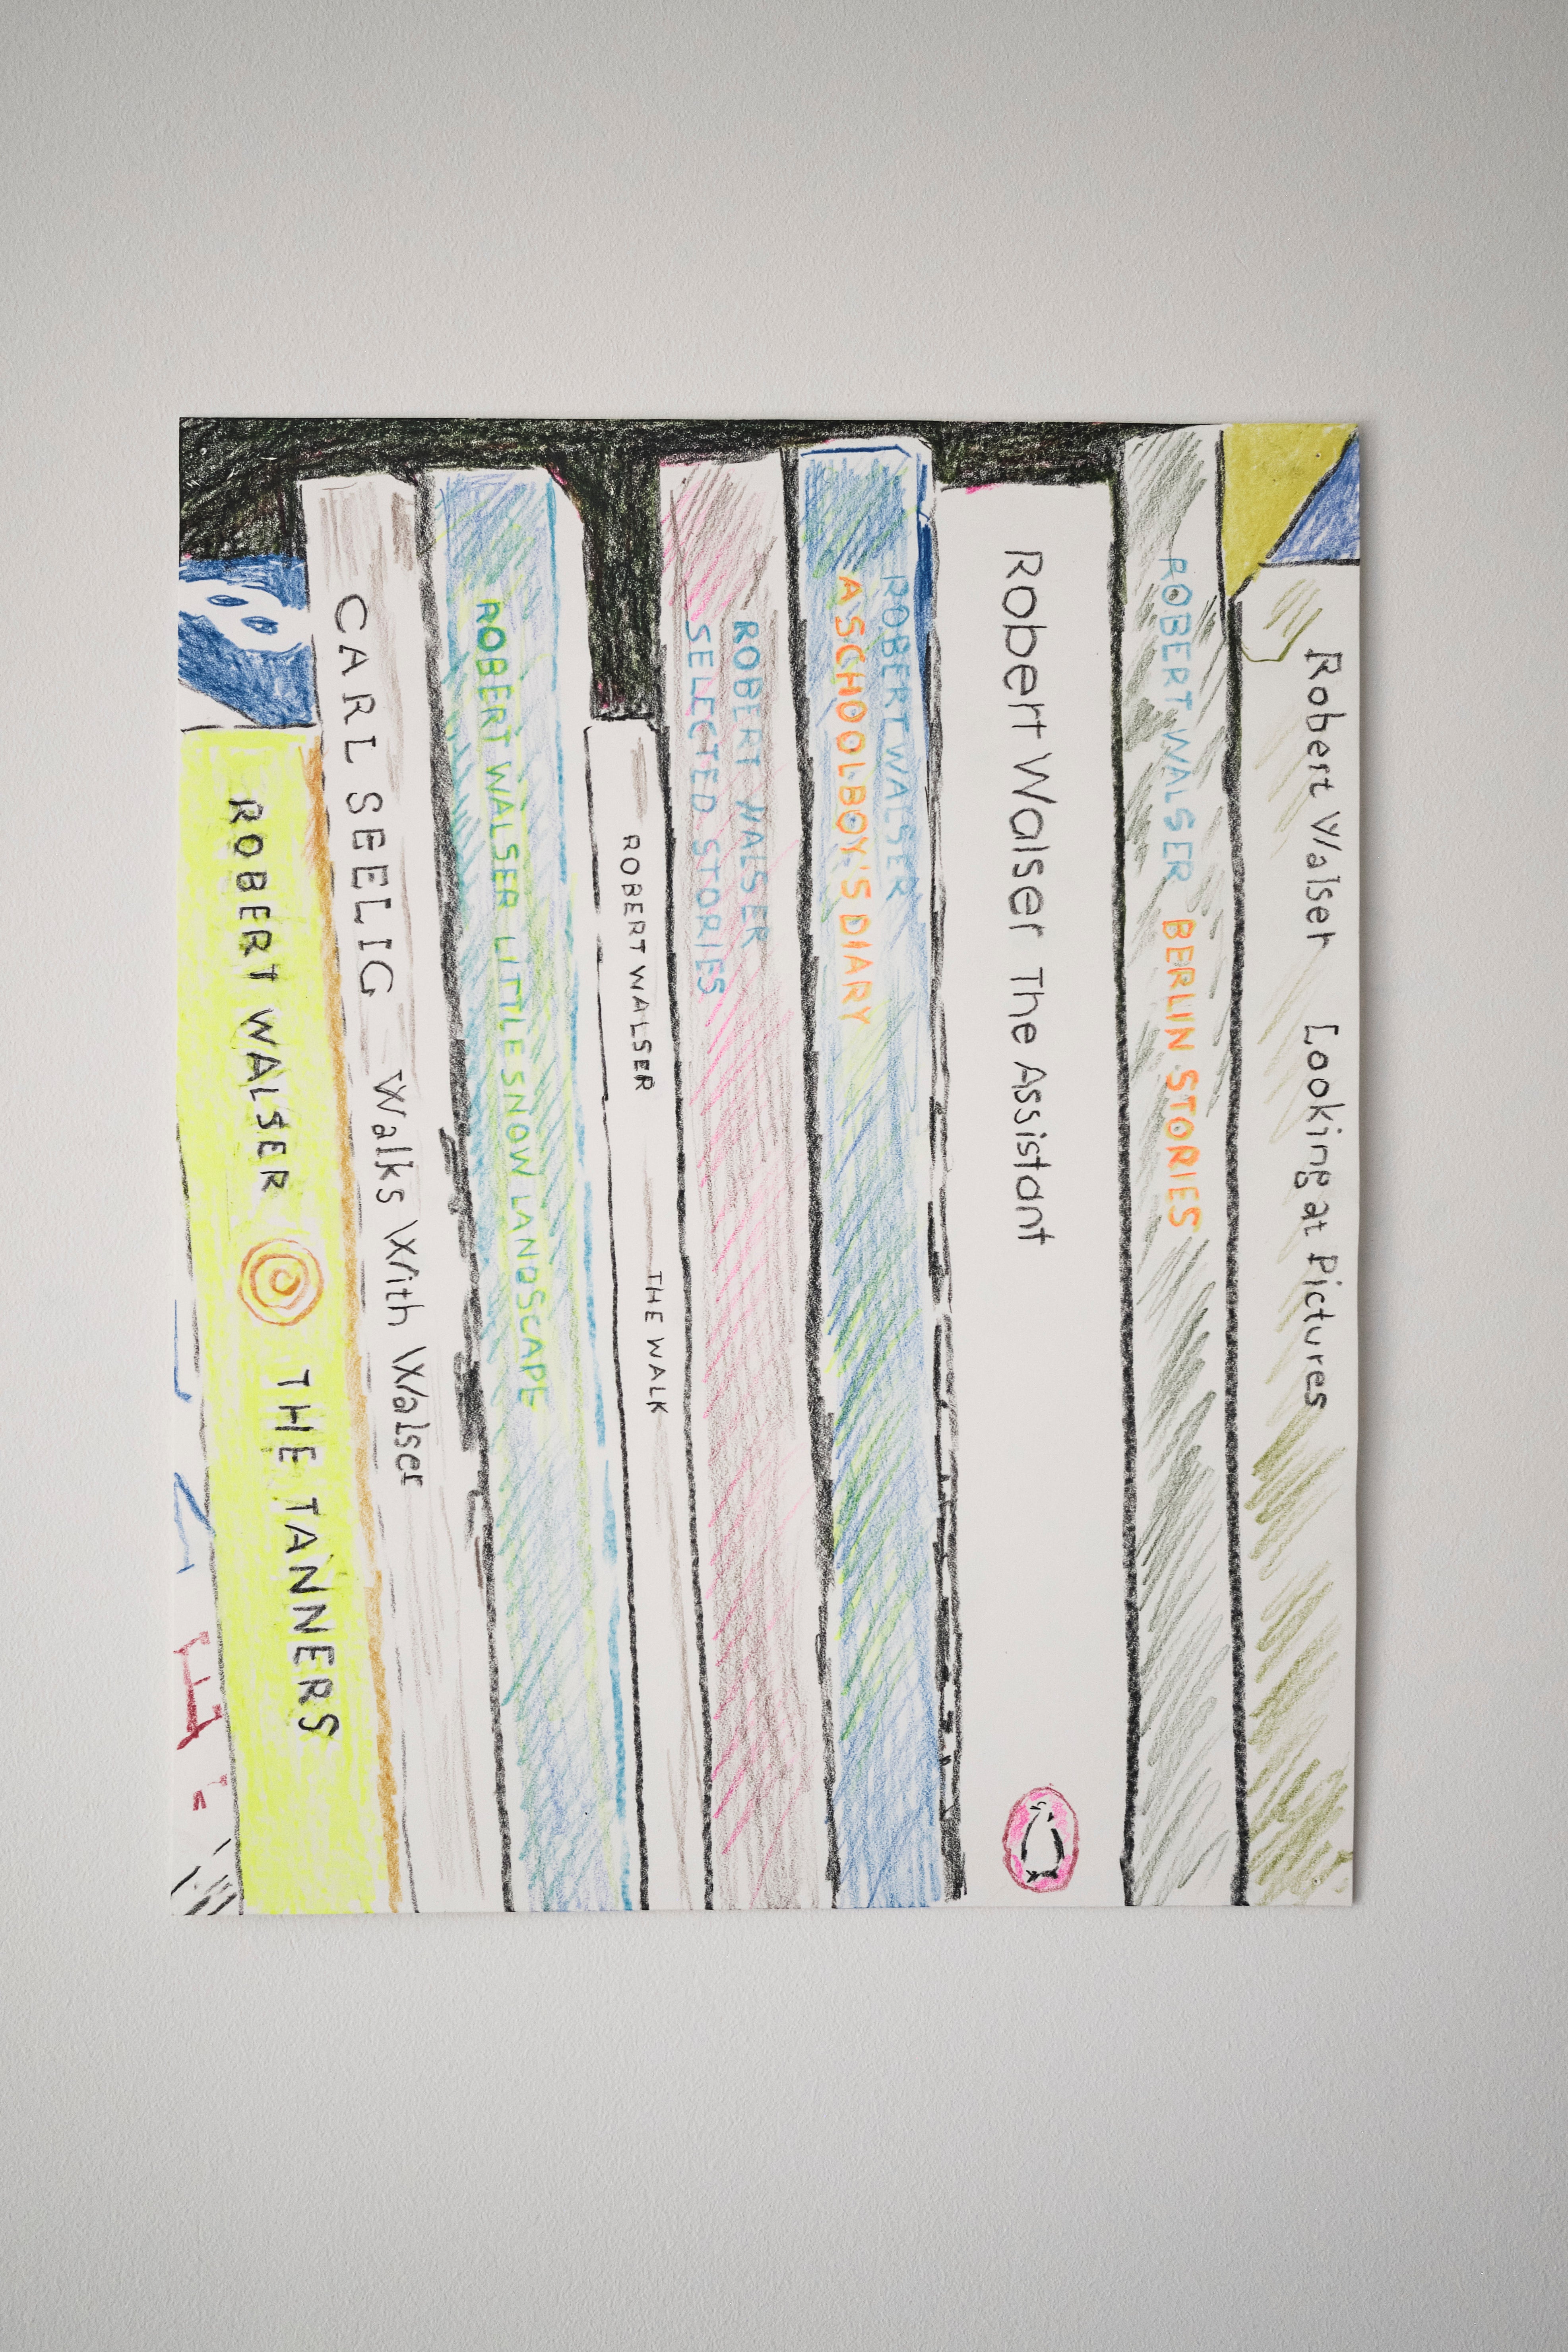 ROBERT WALSER THE TANNERS
CARL SEELIG Walks With Walser
ROBERT WALSER LITTLE SNOW LANDSCAPE
ROBERT WALSER THE WALK
ROBERT WALSER
SELECTED STORIES
ROBERT WALSER
A SCHOOLBOY'S DIARY
Robert Walser The Assistant
ROBERT WALSER BERLIN STORIES
Robert Walser Looking at Pictures